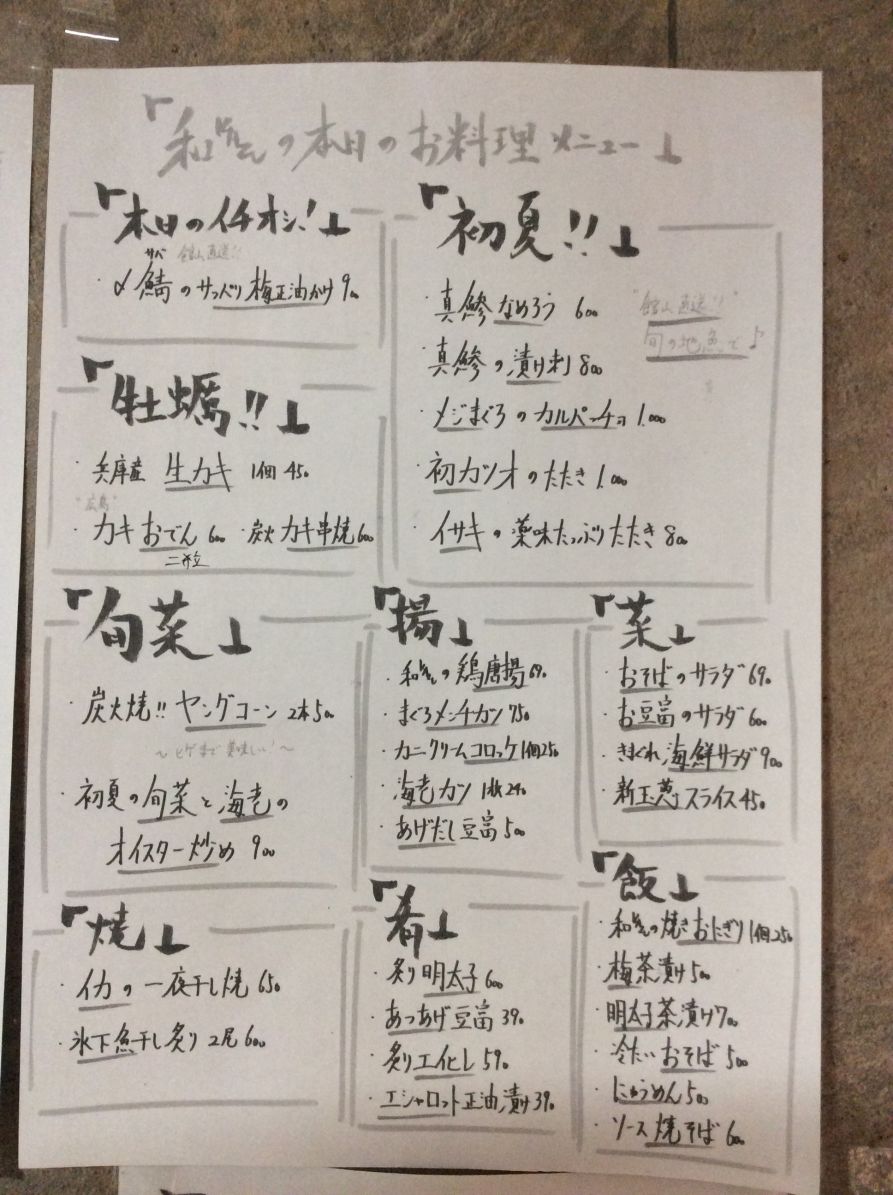 の本日のお料理メニュー」
『本日のイチオシ!』
サバ 館山直送!!
・〆鯖のサッパリ梅正油かけ 900
『牡蠣!!』
・兵庫産 生カキ 1個 450
"広島"
・カキおでん 600 ・炭火カキ串焼 600
二粒
『初夏!!』
・真鯵なめろう 600
"館山直送!!"
旬の地魚で♪
・真鯵の漬け刺 800
・メジまぐろのカルパッチョ 1.000
・初カツオのたたき 1.000
・イサキの薬味たっぷりたたき 800
『旬菜』
・炭火焼!! ヤングコーン 2本 500
〜ヒゲまで美味しい!〜
・初夏の旬菜と海老の
オイスター炒め 900
『揚』
の鶏唐揚 690
・まぐろメンチカツ 750
・カニクリームコロッケ 1個250
・海老カツ 1枚 240
・あげだし豆富 500
『菜』
・おそばのサラダ 690
・お豆富のサラダ 600
・きまぐれ海鮮サラダ 900
・新玉葱スライス 450
『焼』
・イカの一夜干し焼 650
・氷下魚干し炙り 2尾 600
『肴』
・炙り明太子 600
・あつあげ豆富 390
・炙りエイヒレ 590
・エシャロット正油漬け 390
『飯』
の焼きおにぎり 1個250
・梅茶漬け 500
・明太子茶漬け 700
・冷たいおそば 500
・にゅうめん 500
・ソース焼そば 600